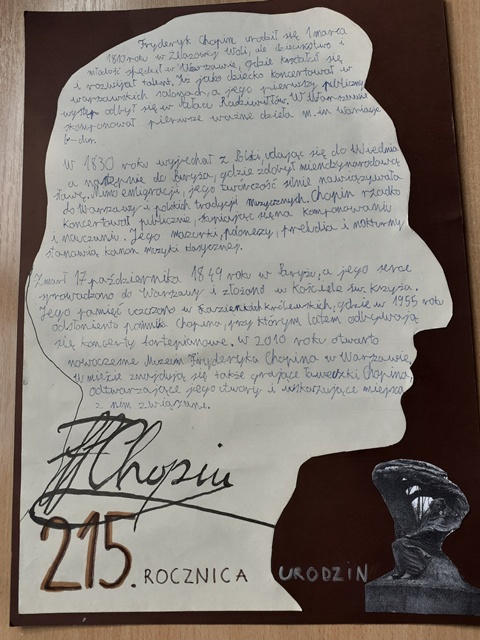 Fryderyk Chopin urodził się 1 marca
1810 roku w Żelazowej Woli, ale dzieciństwo i
młodość spędził w Warszawie, gdzie kształcił się
i rozwijał talent. Już jako dziecko koncertował w
warszawskich salonach, a jego pierwszy publiczny
występ odbył się w Pałacu Radziwiłłów. W Warszawie
skomponował pierwsze ważne dzieła m.in Wariacje
b-dur.
W 1830 roku wyjechał z Polski, udając się do Wiednia
a następnie do Paryża, gdzie zdobył międzynarodową
sławę. Mimo emigracji, jego twórczość silnie nawiązywała
do Warszawy i polskich tradycji muzycznych. Chopin rzadko
koncertował publicznie, skupiając się na komponowaniu
i nauczaniu. Jego mazurki, polonezy, preludia i nokturny
stanowią kanon muzyki klasycznej.
Zmarł 17 października 1849 roku w Paryżu, a jego serce
sprowadzono do Warszawy i złożono w Kościele św. Krzyża.
Jego pamięć uczczono w Łazienkach królewskich, gdzie w 1955 roku
odsłonięto pomnik Chopina, przy którym latem odbywają
się koncerty fortepianowe. W 2010 roku otwarto
nowoczesne Muzeum Fryderyka Chopina w Warszawie,
W mieście znajdują się także grające ławeczki Chopina,
odtwarzające jego utwory i wskazujące miejsca
z nim związane.
Chopin
215. ROCZNICA URODZIN